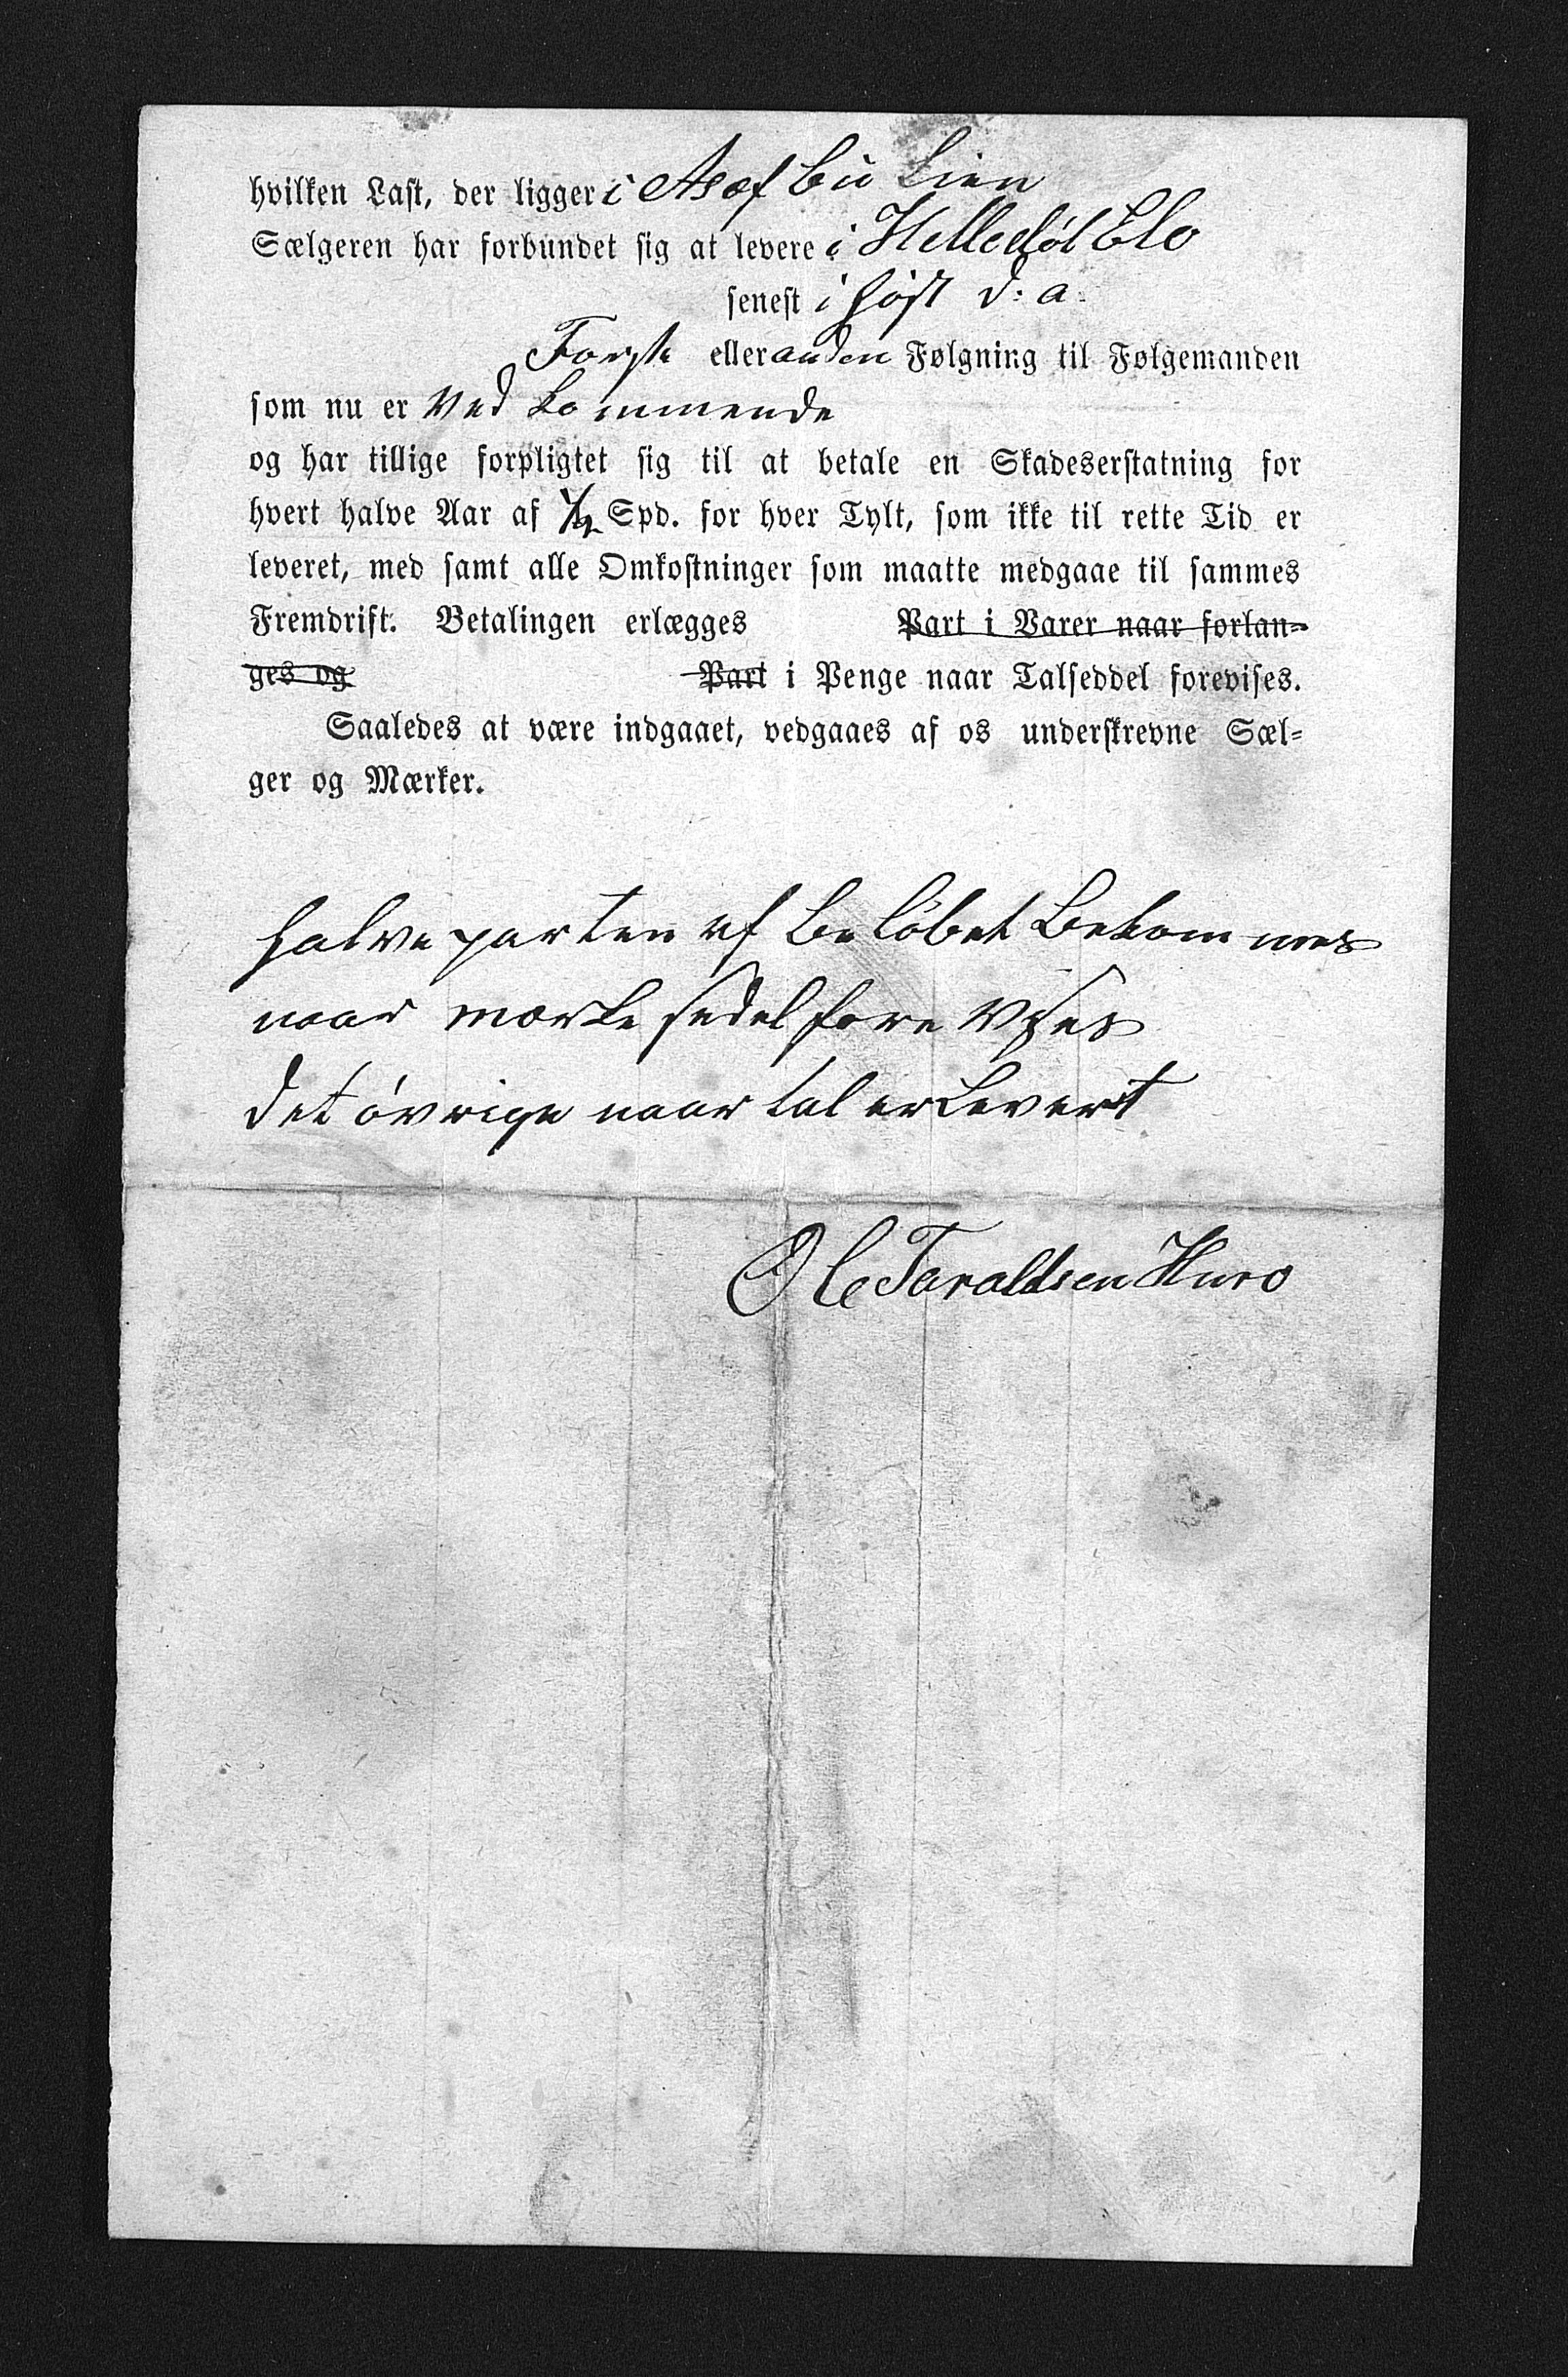 hvilken Last, der ligger i Asof bu Lien
Sælgeren har forbundet sig at levere i Helledøl Elv
senest i høst d: a.
Forste eller anden Følgning til Følgemanden
som nu er Ved kommende
og har tillige forpligtet sig til at betale en Skadeserstatning for
hvert halve Aar af 1/2 Spd. for hver Tylt, som ikke til rette Tid er
leveret, med samt alle Omkostninger som maatte medgaae til sammes
Fremdrift. Betalingen erlægges Part i Varer naar forlan-
ges og Part i Penge naar Talseddel forevises.
Saaledes at være indgaaet, vedgaaes af os underskrevne Sæl-
ger og Mærker.
halve parten af Beløbet Bekommes
naar mærke sedel fore vises
det øvrige naar tal er Levert
Ole Taraldsen Huro